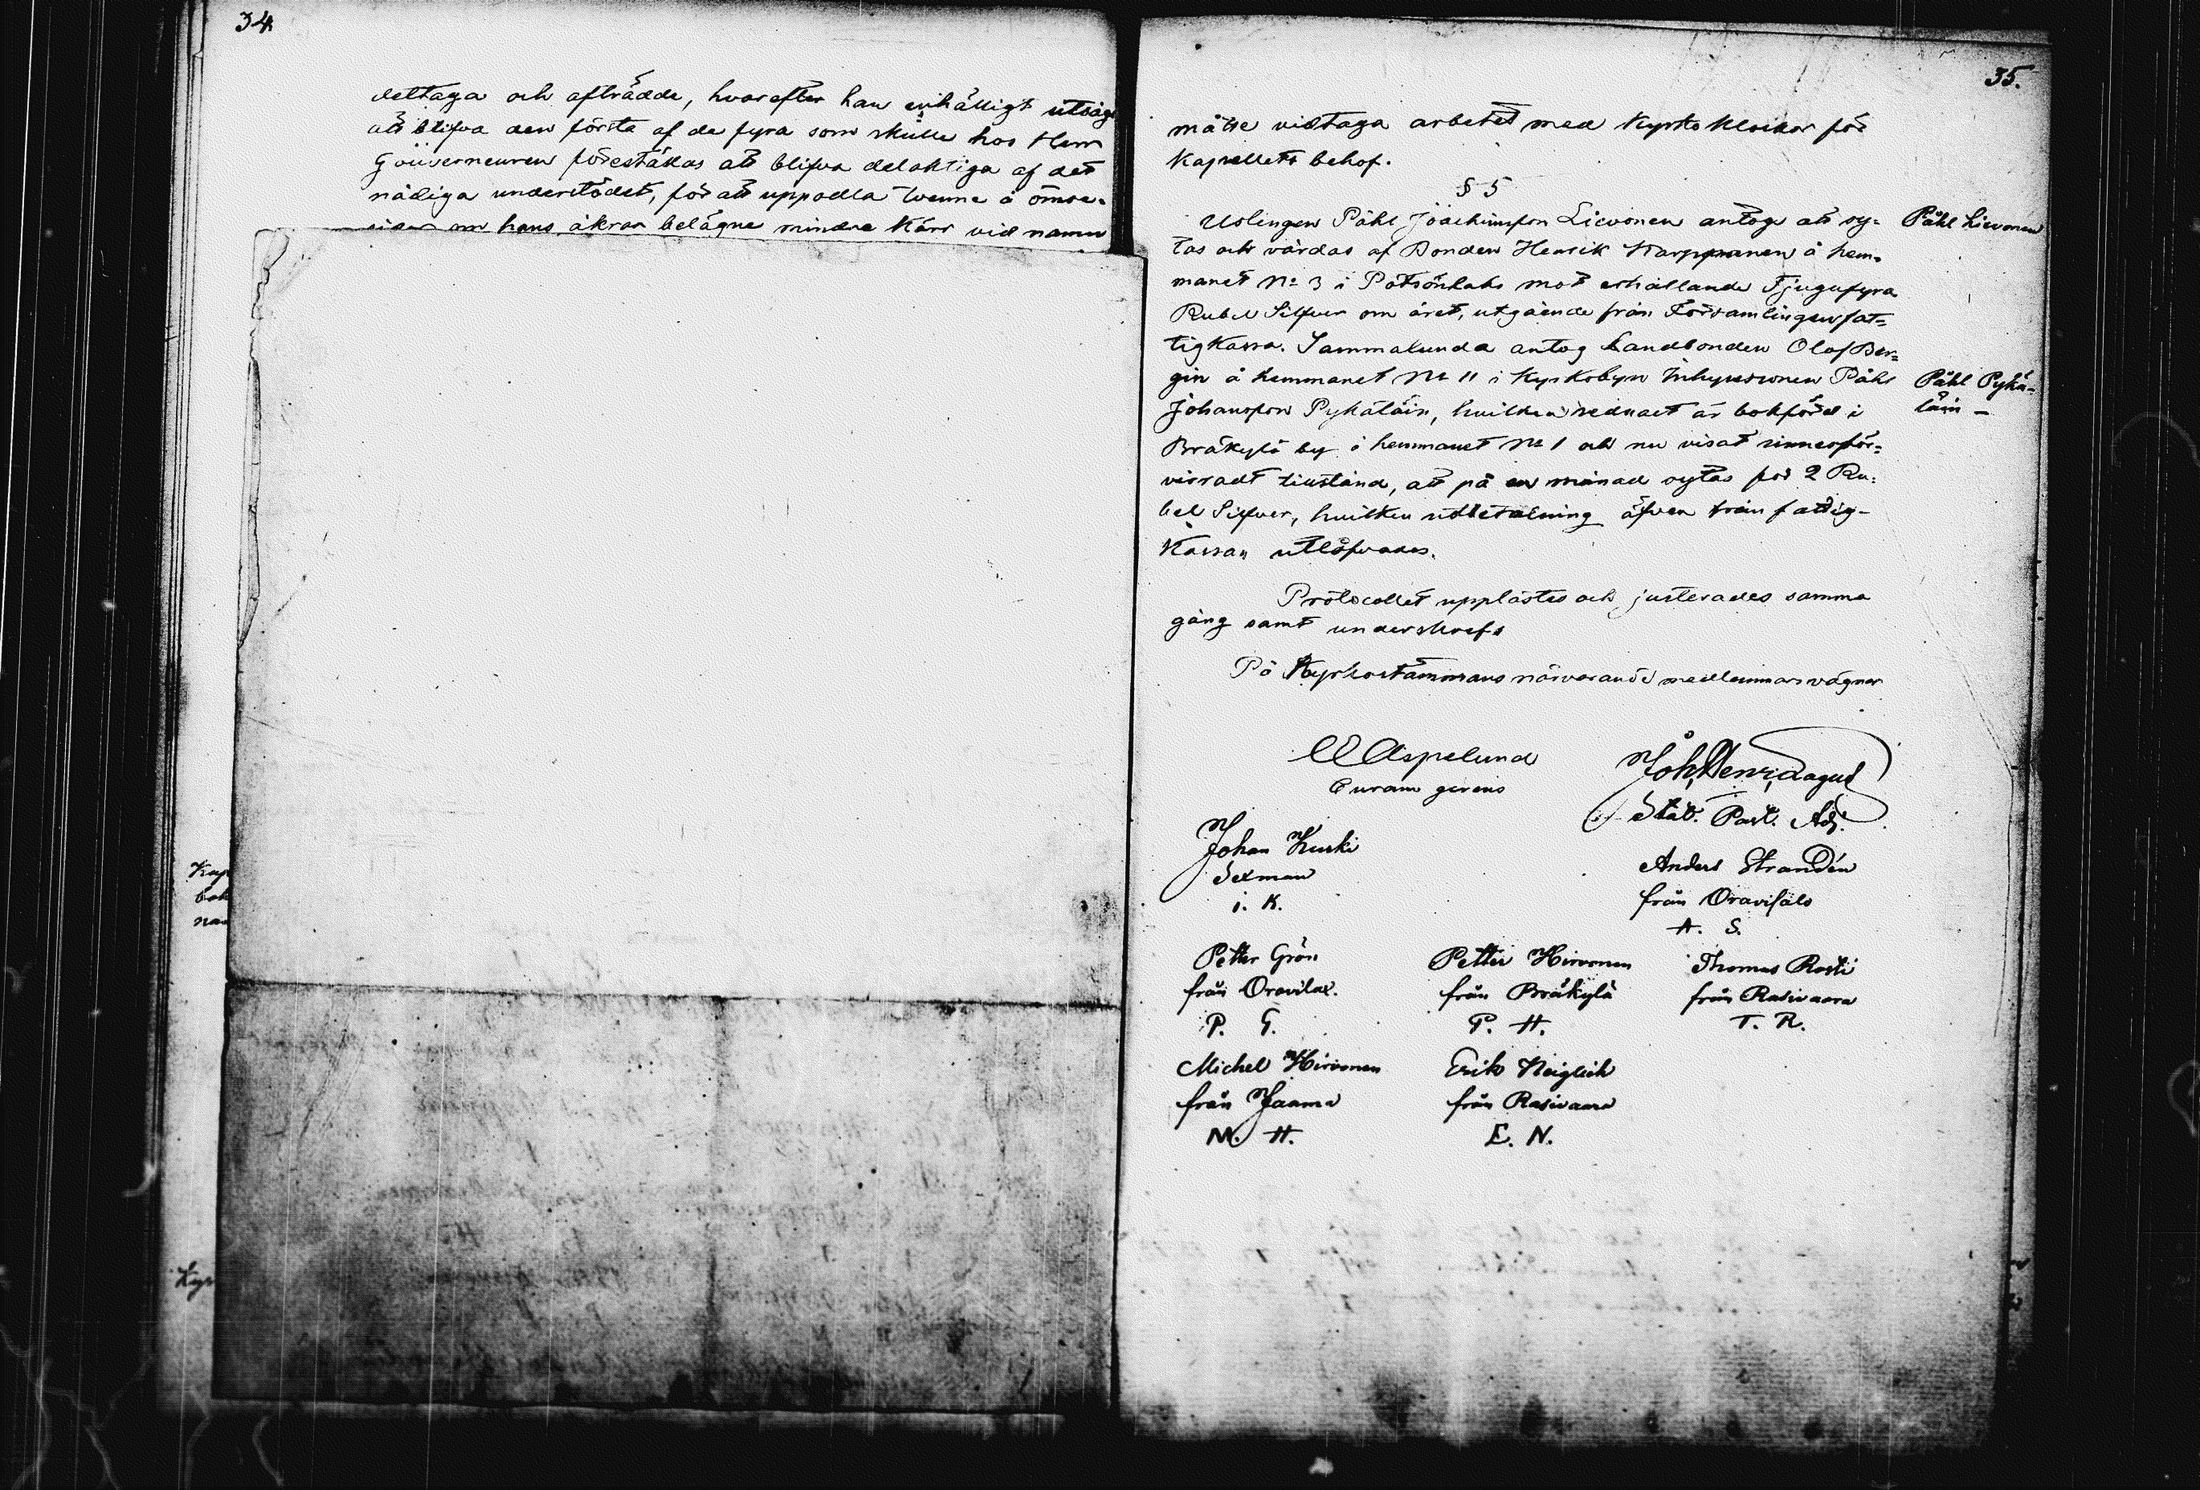 34.
deltaga och afträdde, hvarefter han enhälligt utsågs
att blifva den första af de fyra som skulle hos Herr
Gouverneuren föreställas att blifva delaktiga af det
nådiga understödet, för att uppodla tvenne å ömse-
sidor om hans åkrar belägne mindre Kärr vid namn
Kap
bok
nar
Kyr
35.
måtte vidtaga arbetet med Kyrko Klockor för
Kapellets behof.
§ 5
Uslingen Påhl Joachimsson Lievonen antogs att sy-
tas och vårdas af Bonden Henrik Karppanen å hem-
manet No 3 i Potsönlaks mot erhållande Tjugufyra
Rubel Silfver om året, utgående från Församlingens fat-
tigkassa. Sammalunda antog Landbonden Olof Ber-
gin å hemmanet No 11 i Kyrkobyn Inhysesonen Påhl
Johansson Pykäläin, hvilken sednast är bokförd i
Bräkylä by å hemmanet No 1 och nu visat sinnesför-
virradt tillstånd, att på en månad sytas för 2 Ru-
bel Silfver, hvilken utbetalning äfven från fattig-
Kassan utlofvades.
Påhl Lievonen
Påhl Pykä-
läin –
Protocollet upplästes och justerades samma
gång samt underskrefs
På Kyrkostämmans närvarande medlemmars vägnar
Aspelund
Curam gerens
Joh. Henr.
Stád. Past. Adj.
Johan Kurki
Sexman
i. K.
Anders Strandén
från Oravisalo
A. S.
Petter Grön
från Oravilax.
P. G.
Petter Hirvonen
från Bräkylä
P. H.
Thomas Rosti
från Rasivaara
T. R.
Michel Hirvonen
från Jaama
M. H.
Erik Neiglick
från Rasivaara
E. N.